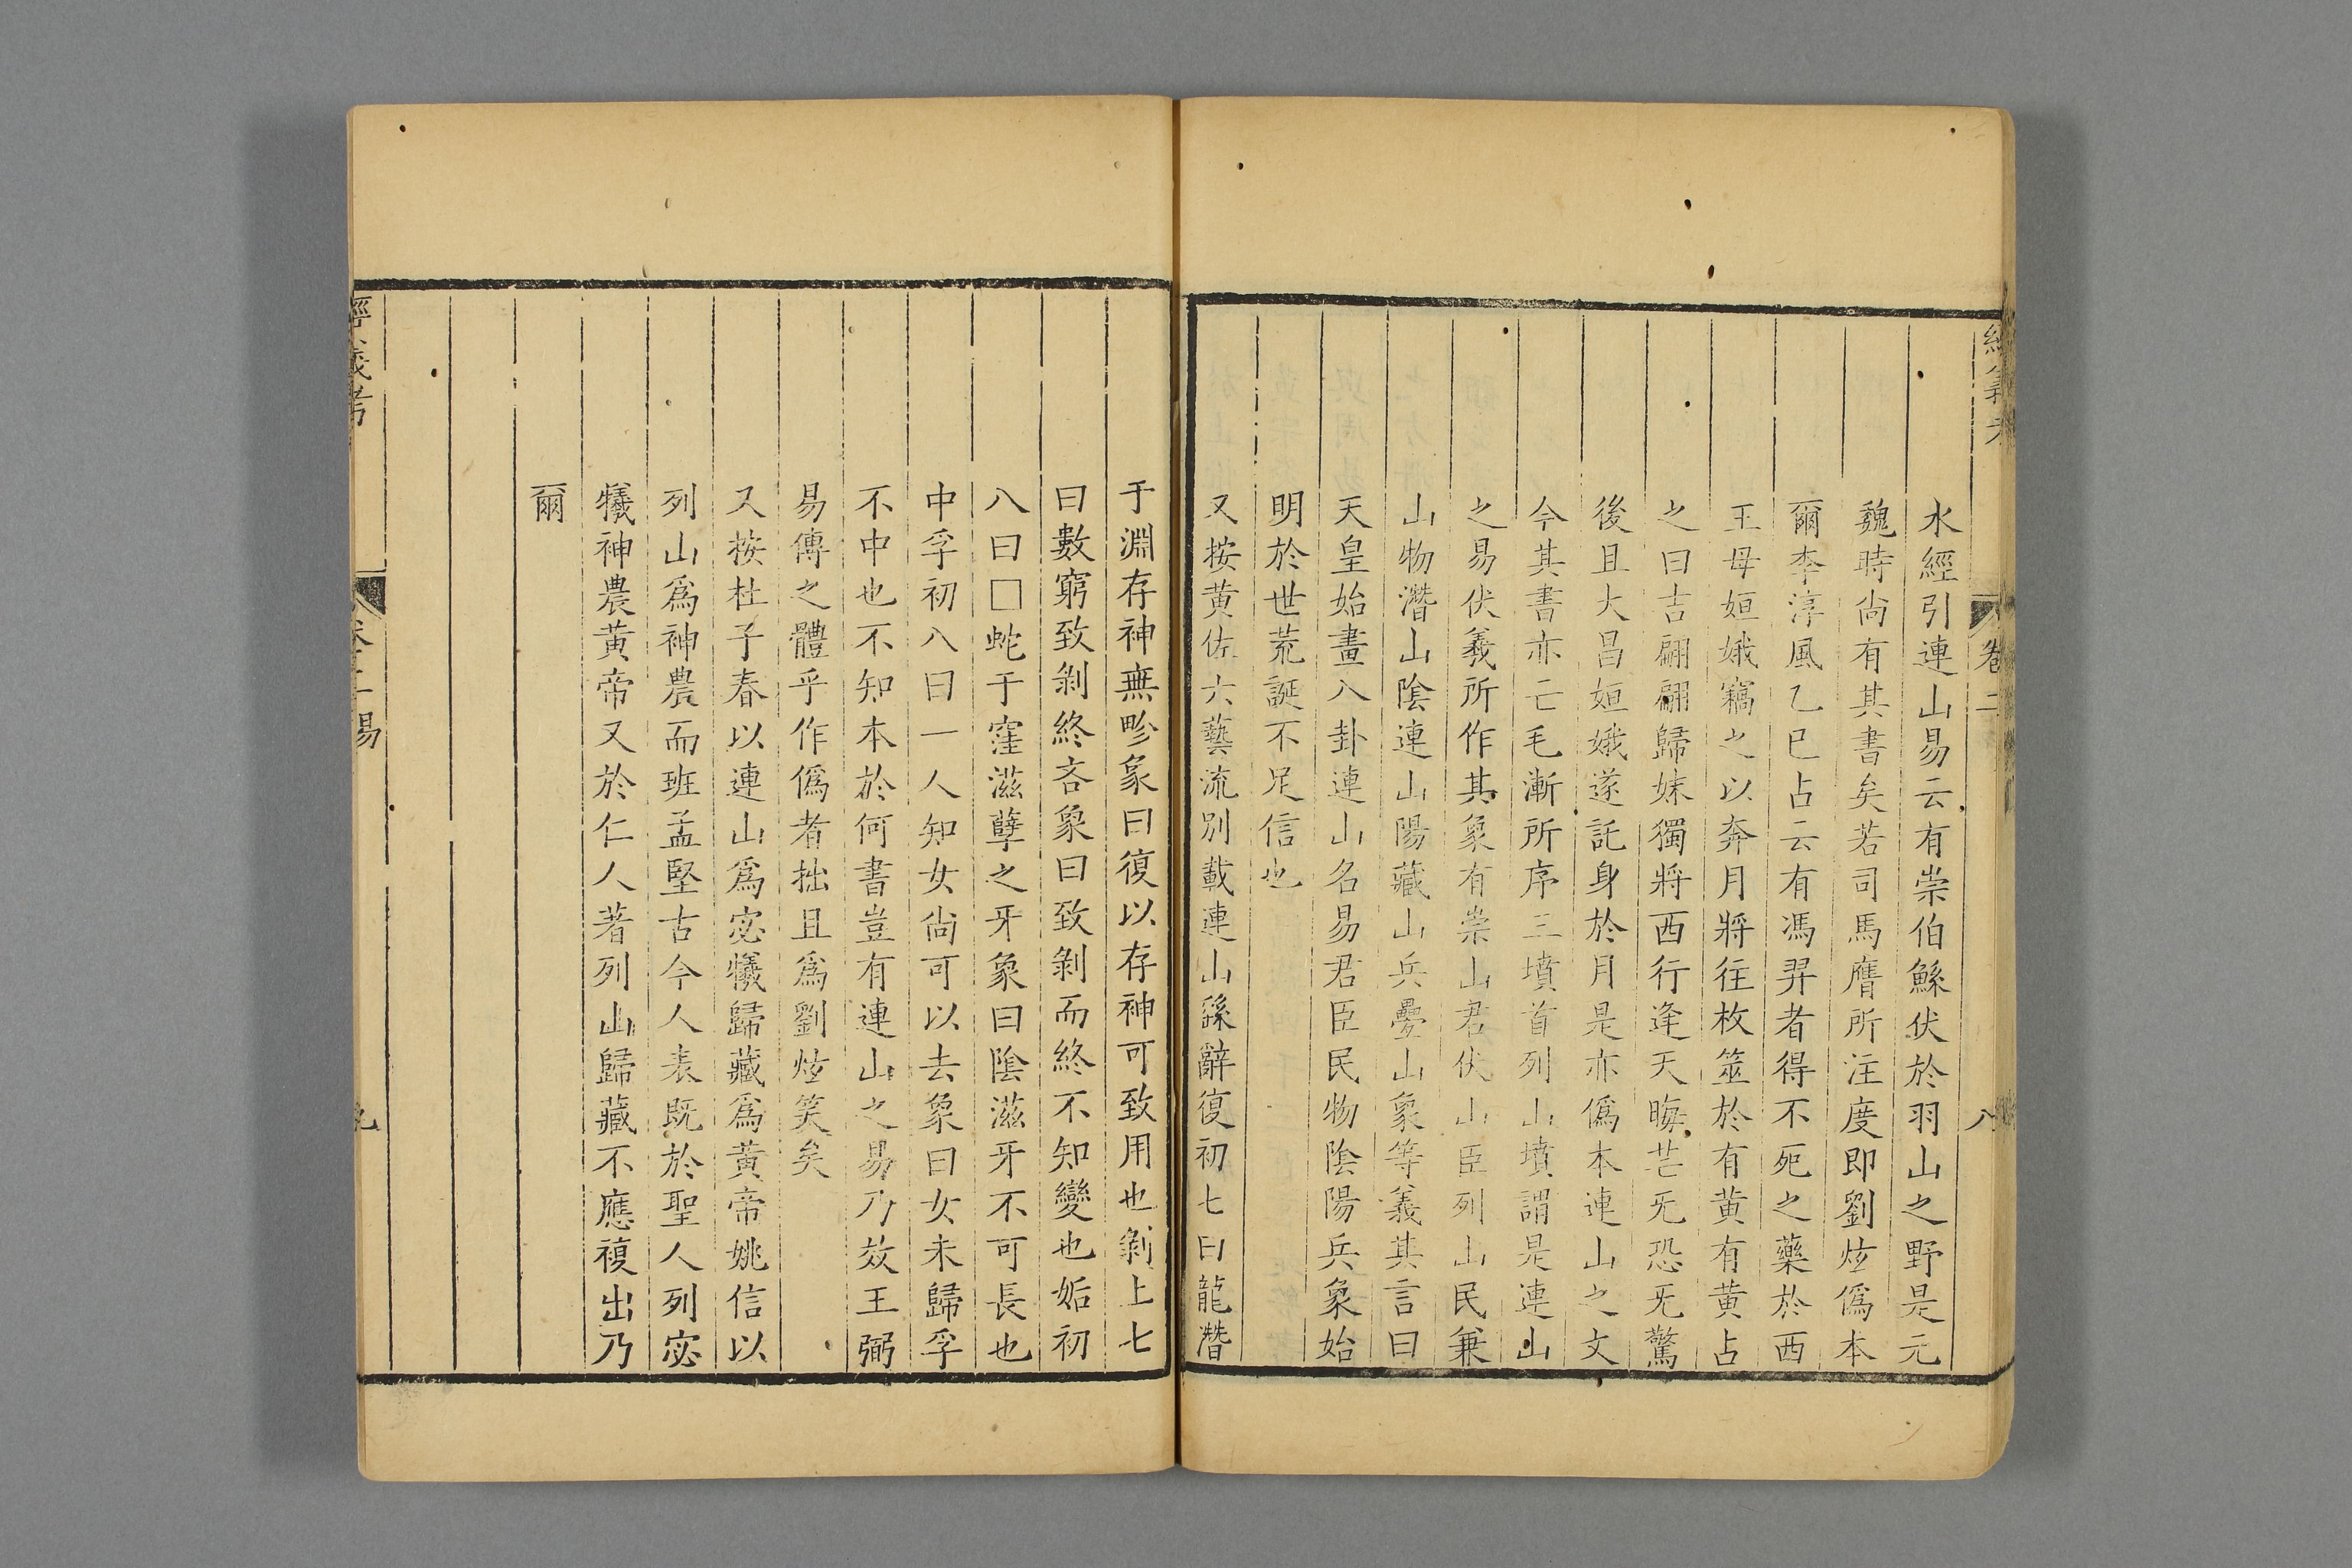 卷二
八
水經引連山易云有崇伯鯀伏於羽山之野是元
魏時尙有其書矣若司馬膺所注度即劉炫僞本
爾李淳風乙巳占云有馮羿者得不死之藥於西
王母姮娥竊之以奔月將往枚筮於有黃有黃占
之曰吉翩翩歸妹獨將西行逢天晦芒旡恐旡驚
後且大昌姮娥遂託身於月是亦僞本連山之文
今其書亦亡毛漸所序三墳首列山墳謂是連山
之易伏羲所作其象有崇山君伏山臣列山民兼
山物潛山陰連山陽藏山兵疊山象等義其言曰
天皇始畫八卦連山名易君臣民物陰陽兵象始
明於世荒誕不足信也
又按黃佐六藝流別載連山繇辭復初七曰龍潛
于淵存神無畛象曰復以存神可致用也剝上七
曰數窮致剝終吝象曰致剝而終不知變也姤初
八曰□蛇于窪滋孽之牙象曰陰滋牙不可長也
中孚初八曰一人知女尙可以去象曰女未歸孚
不中也不知本於何書豈有連山之易乃效王弼
易傳之體乎作僞者拙且爲劉炫笑矣
又按杜子春以連山爲宓犧歸藏爲黃帝姚信以
列山爲神農而班孟堅古今人表既於聖人列宓
犧神農黃帝又於仁人著列山歸藏不應複出乃
爾
經義考
易
九